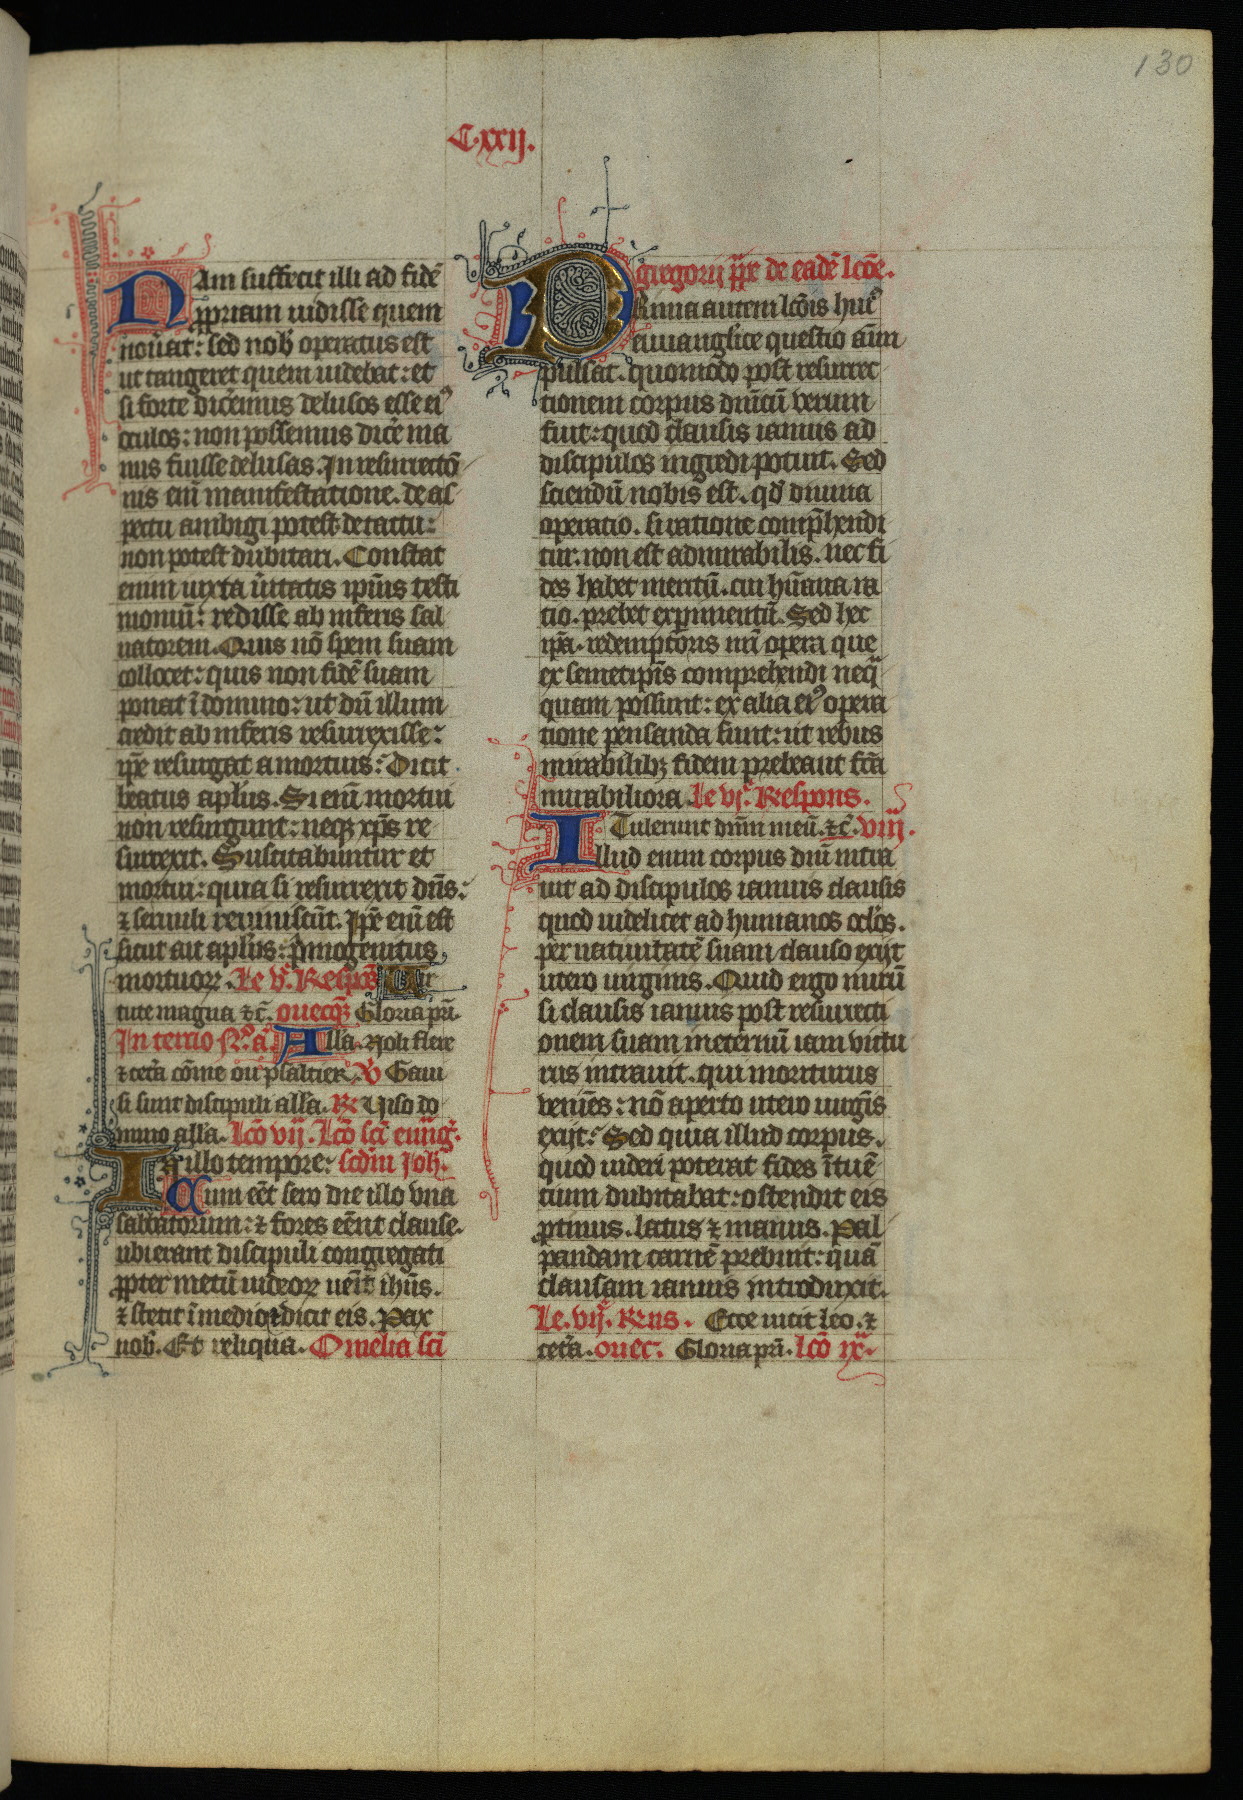 130
C.xxij.
Nam suffecit illi ad fidē
ꝓpriam uidisse quem
nouat: sed nob̾ operatus est
ut tangeret quem uidebat: et
si forte dicemus delusos esse ei᷒
oculos: non possemus dice ma
nus fuisse delusas. In resurrectō
nis eim̄ manifestatione. de as
pectu ambigi potest de tactu:
non potest dubitari. Constat
enim iuxta u̾itatis ipi̾us testi
moniū: redisse ab inferis sal
uatorem. Quis nō spem suam
collocet: quis non fidē suam
ponat ī domino: ut dū illum
credit ab inferis resurrexisse:
ip̄e resurgat a mortuis: Dicit
beatus apl̾us. Si eim̄ mortui
non resurgunt: neqꝫ xp̄s re
surrexit. Suscitabuntur et
mortui: quia si resurrexit dn̄s:
⁊ seruuli reuiuiscūt. Ip̄e eim̄ est
sicut ait apl̾us: p̄mogenitus
mortuoꝝ. Le v̾. Respōs Uir
tute magna ⁊c̄. ouecqꝫ Gloria pr̄i.
In tercio N̊. a̾. Alla. Noli flere
⁊ cet̾a cōme ou psaltier. V̾ Gaui
si sunt discipuli all̾a. R̾ Uiso do
mino all̾a. Lcō vij. Lcō sc̄i euūg̾.
In illo tempore: scd̄m Joh̾.
Cum eēt sero die illo vna
sabbatorum: ⁊ fores eēnt clause.
ubi erant discipuli congregati
ꝓpter metū iudeoꝝ uēit ihūs.
⁊ stetit ī medio ⁊ dicit eis. Pax
nob̾. Et reliqua. Omelia sc̄i
gregorij pp̄e de eadē lcōe.
PRima autem lcōis hui᷒
euuanglice questio aīm
pulsat. quomodo post resurrec
tionem corpus dn̄icū verum
fuit: quod clausis ianuis ad
discipulos ingredi potuit. Sed
sciendū nobis est. qd̾ diuina
operatio. si ratione compͣhendi
tur. non est admirabilis. nec fi
des habet meritū. cui hūana ra
tio. prebet experimentū. Sed hec
ip̄a. redemptoris nr̄i opera que
ex semetip̄is comprehendi neq̄
quam possunt: ex alia ei᷒ opera
tione pensanda sunt: ut rebus
mirabilibꝫ fidem prebeant fcā
mirabiliora Le vj̾. Respons.
Tulerunt dn̄m meū. ⁊c̄. viij.
Illud enim corpus dn̄i intra
uit ad discipulos ianuis clausis
quod uidelicet ad humanos oc̾los.
per natiuitatē suam clauso exijt
utero uirginis. Quid ergo mirū
si clausis ianuis post resurrecti
onem suam in eternū iam victu
rus intrauit. qui moriturus
veniēs: nō aperto utero uirgīs
exijt: Sed quia illud corpus.
quod uideri poterat fides ītuē
tium dubitabat: ostendit eis
ꝓtinus. latus ⁊ manus. Pal
pandam carnē prebuit: quā
clausam ianuis introduxit.
Le. vij̾. R̾ns. Ecce uicit leo. ⁊
cet̾a. ouec̾. Gloria pr̄i. Lcō ix̾.